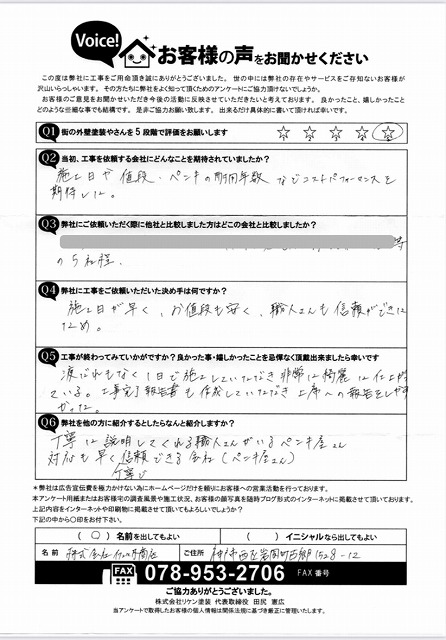 Voice!
お客様の声をお聞かせください
この度は弊社に工事をご用命頂き誠にありがとうございました。世の中には弊社の存在やサービスをご存知ないお客様が
沢山いらっしゃいます。その方たちに弊社をよく知って頂くためのアンケートにご協力頂けないでしょうか。
お客様のご意見をお聞かせいただき今後の活動に反映させていただきたいと考えております。良かったこと、嬉しかったこと
どのような些細な事でも結構です。是非ご協力お願い致します。出来るだけ具体的に書いて頂ければ幸いです。
Q1 街の外壁塗装やさんを5段階で評価をお願いします
Q2 当初、工事を依頼する会社にどんなことを期待されていましたか?
施工日や値段、ペンキの耐用年数などコストパフォーマンスを
期待した。
Q3 弊社にご依頼いただく際に他社と比較しました方はどこの会社と比較しましたか?
等
の5社程。
Q4 弊社に工事をご依頼いただいた決め手は何ですか?
施工日が早く、お値段も安く、職人さんも信頼ができた
ため。
Q5 工事が終わってみていかがですか?良かった事・嬉しかったことを忌憚なく頂戴出来ましたら幸いです
液だれもなく1日で施工していただき非常に綺麗に仕上がっ
ている。工事完了報告書も作成していただき上席への報告もしやす
かった。
Q6 弊社を他の方に紹介するとしたらなんと紹介しますか?
丁寧に説明してくれる職人さんがいるペンキ屋さん
対応も早く信頼できる会社(ペンキ屋さん)
丁寧で
*弊社は広告宣伝費を極力かけない為にホームページだけを頼りにお客様への営業活動を行っております。
本アンケート用紙またはお客様宅の調査風景や施工状況、お客様の顔写真を随時ブログ形式のインターネットに掲載させて頂いております。
上記内容をインターネットや印刷物に掲載させて頂いてもよろしいでしょうか?
下記の中から〇印をお付下さい。
( 〇 ) 名前を出してもよい ( ) イニシャルなら出してもよい
名前 株式会社 ご住所 神戸市西区岩岡町古郷1528-12
FAX 078-953-2706 FAX番号
ご協力ありがとうございました。
株式会社リケン塗装 代表取締役 田尻 憲広
当アンケートで取得したお客様の個人情報は関係法規に基づき厳正に管理いたします。